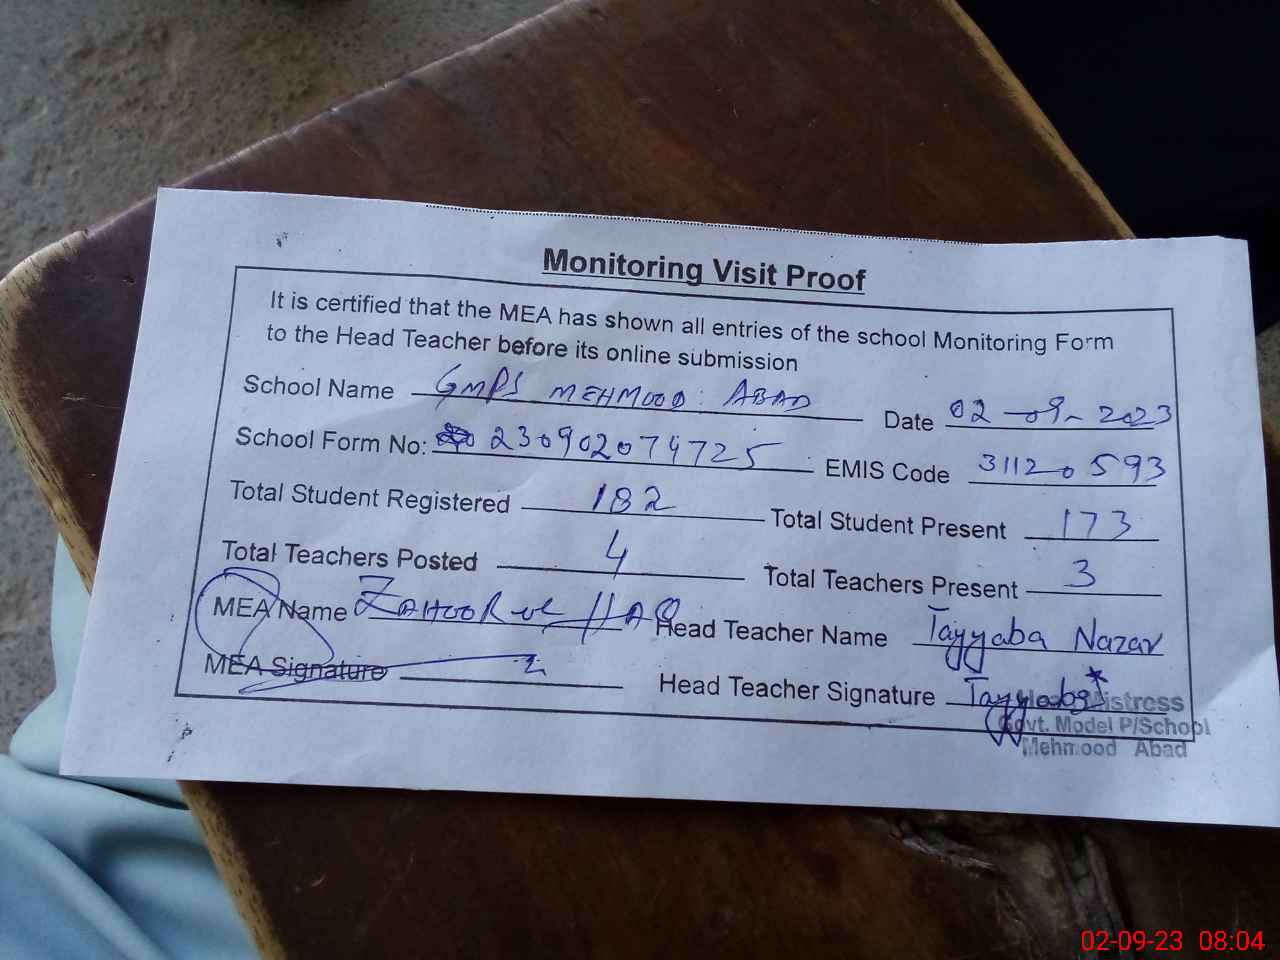 Monitoring Visit Proof
It is certified that the MEA has shown all entries of the school Monitoring Form
to the Head Teacher before its online submission
School Name GMPS MEHMOOD: ABAD Date 02-09-2023
School Form No: 230902074725 EMIS Code 31120593
Total Student Registered 182 Total Student Present 173
Total Teachers Posted 4 Total Teachers Present 3
MEA Name ZAHOOR UL HAQ Head Teacher Name Tayyaba Nazar
MEA Signature Head Teacher Signature Tayyaba
Head Mistress
Govt. Model P/School
Mehmood Abad
02-09-23 08:04